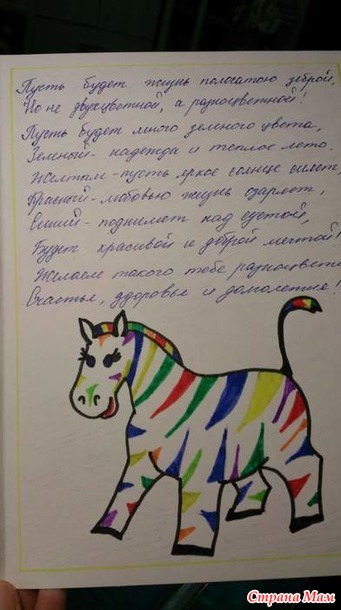 Пусть будет жизнь полосатою зеброй,
Но не двухцветной, а разноцветной!
Пусть будет много зеленого цвета,
Зеленый - надежда и теплое лето.
Желтым - пусть яркое солнце сияет,
Красный - любовью жизнь озаряет,
Синий - поднимет над суетой,
Будет красивой и доброй мечтой!
Желаем такого тебе разноцветия
Счастья, здоровья и долголетия!
Страна Мам